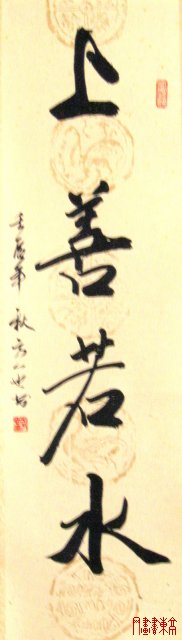 上善若水
壬辰年 秋